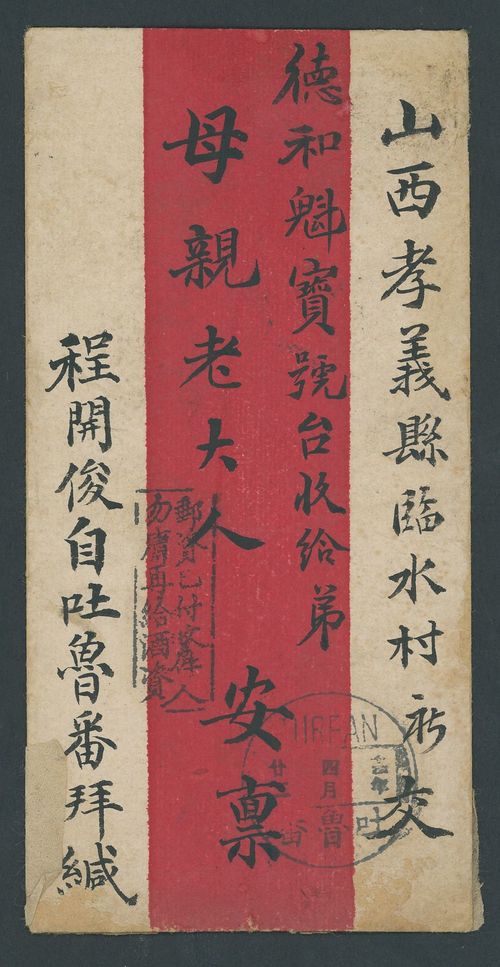 山西孝義縣臨水村祈交
德和魁寶號台收給弟
母親老大人 安稟
程開俊自吐魯番拜緘
郵資已付收件人
勿庸再給酒資
TURFAN
年
四月
廿
吐魯番